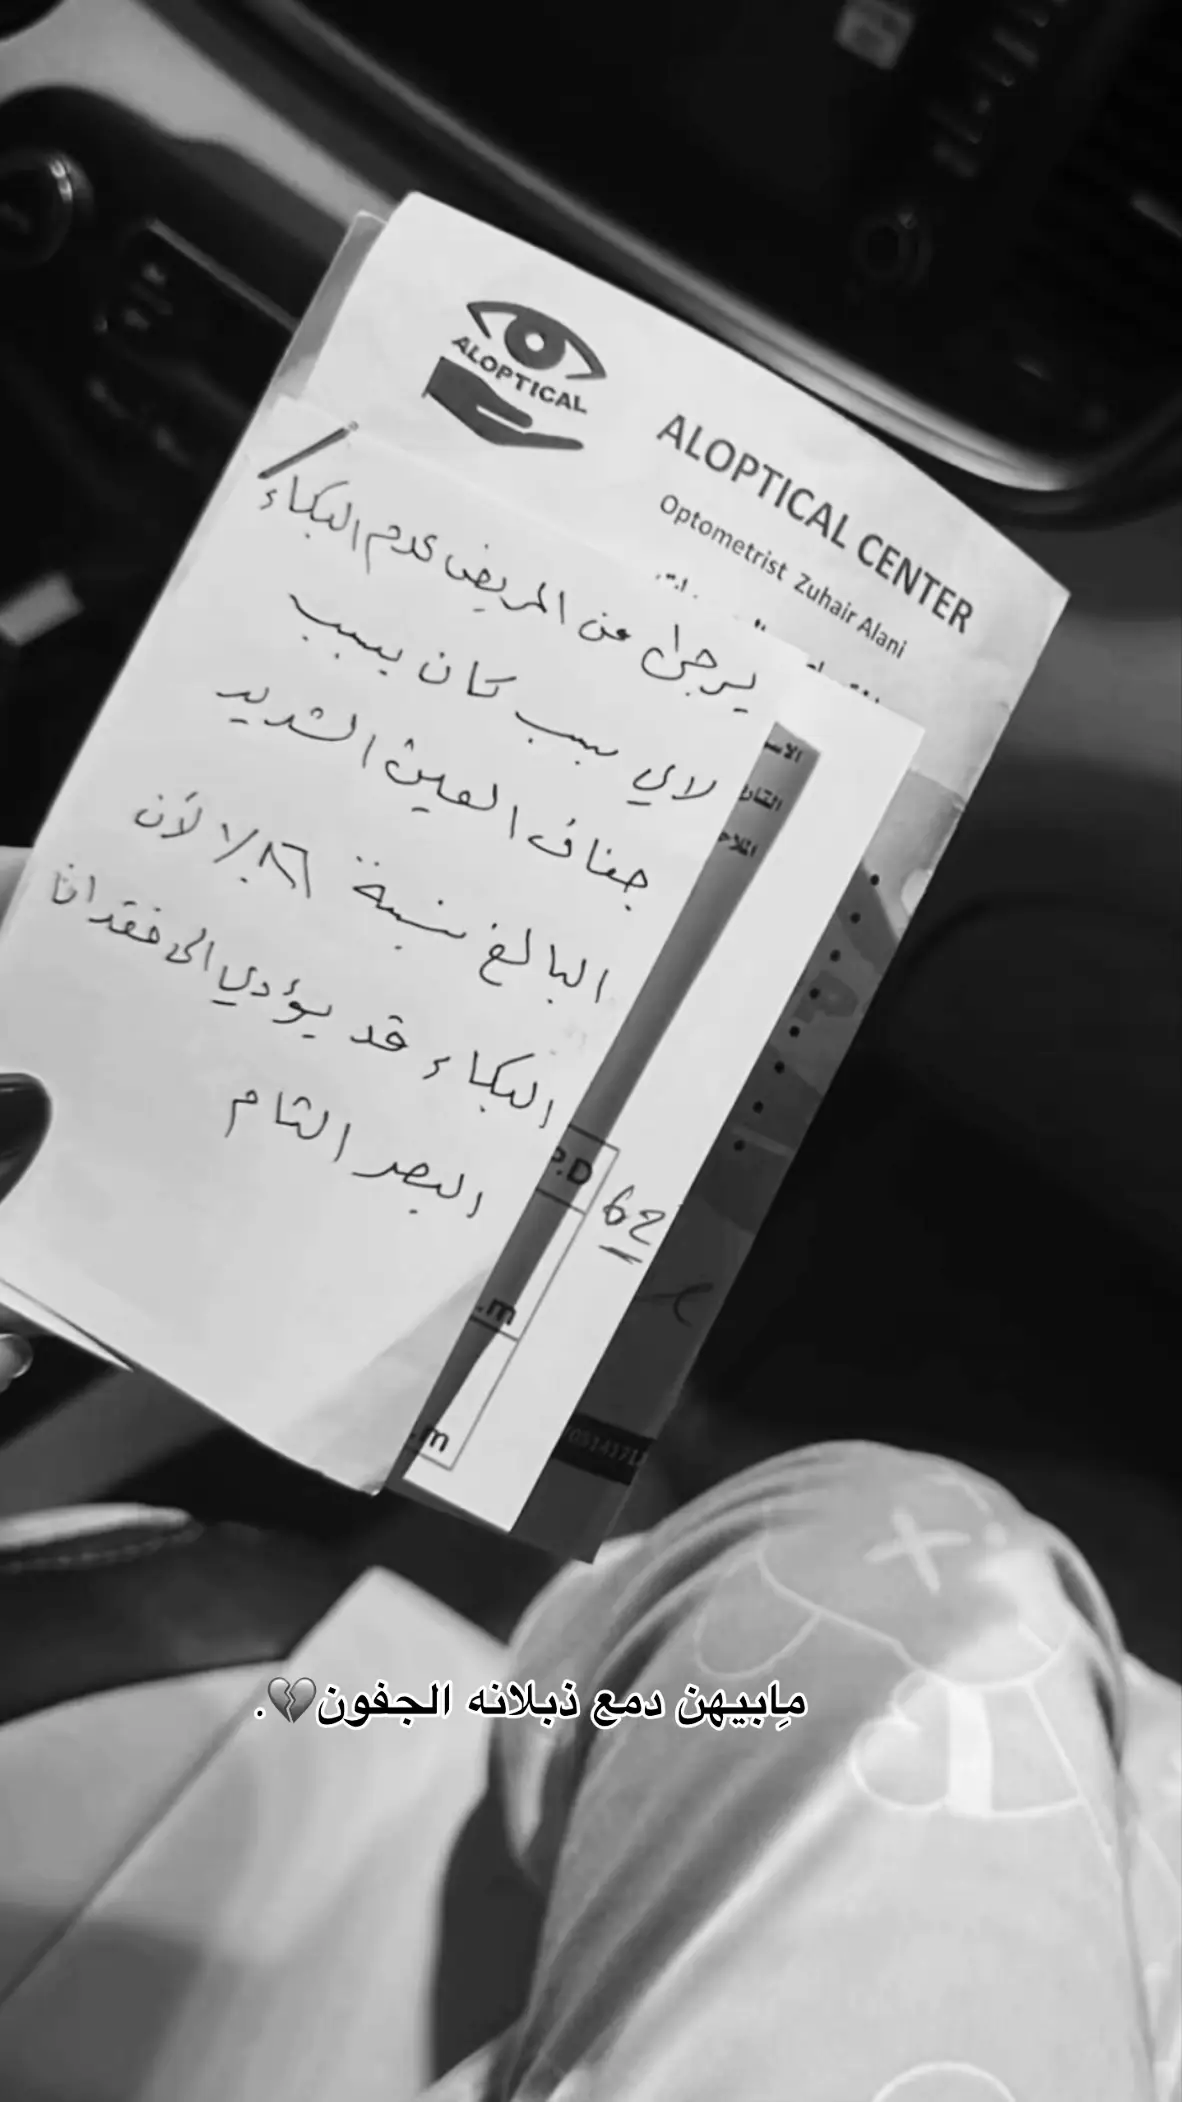 ALOPTICAL
ALOPTICAL CENTER
Optometrist Zuhair Alani
يرجى من المريض عدم البكاء
لاي سبب كان بسبب
جفاف العين الشديد
البالغ نسبة ٨٦٪ لأن
البكاء قد يؤدي الى فقدان
البصر التام
P.D
62
m.
m.
مِابيهن دمع ذبلانه الجفون💔.